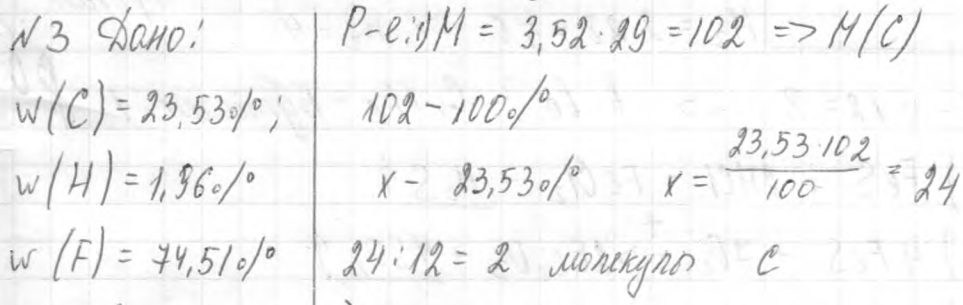 №3 Дано:
w(C) = 23,53%;
w(H) = 1,96%
w(F) = 74,51%
Р-е: 1) M = 3,52·29 = 102 => M(C)
102 - 100%
x - 23,53% x = 23,53·102 / 100 = 24
24:12 = 2 молекулы C